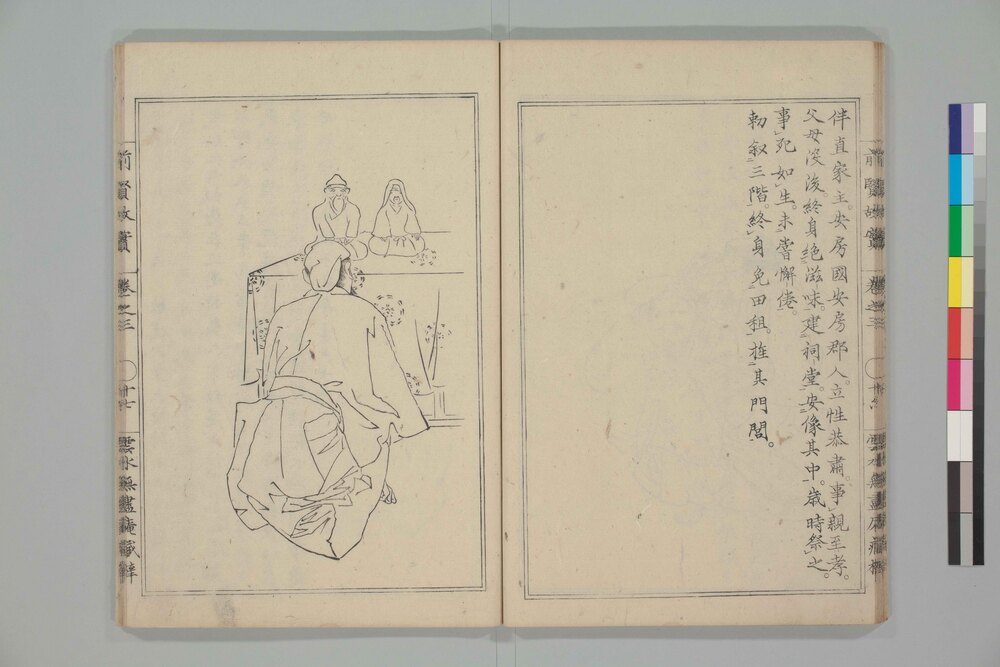 伴直家主。安房國安房郡人。立性恭肅。事親至孝。
父母沒後。終身絶滋味。建祠堂。安像其中。歳時祭之。
事死如生。未嘗懈倦。
勅叙三階。終身免田租。旌其門閭。
前賢故實
卷之三
雲水無盡庵藏梓
前賢故實
卷之三
雲水無盡庵藏梓